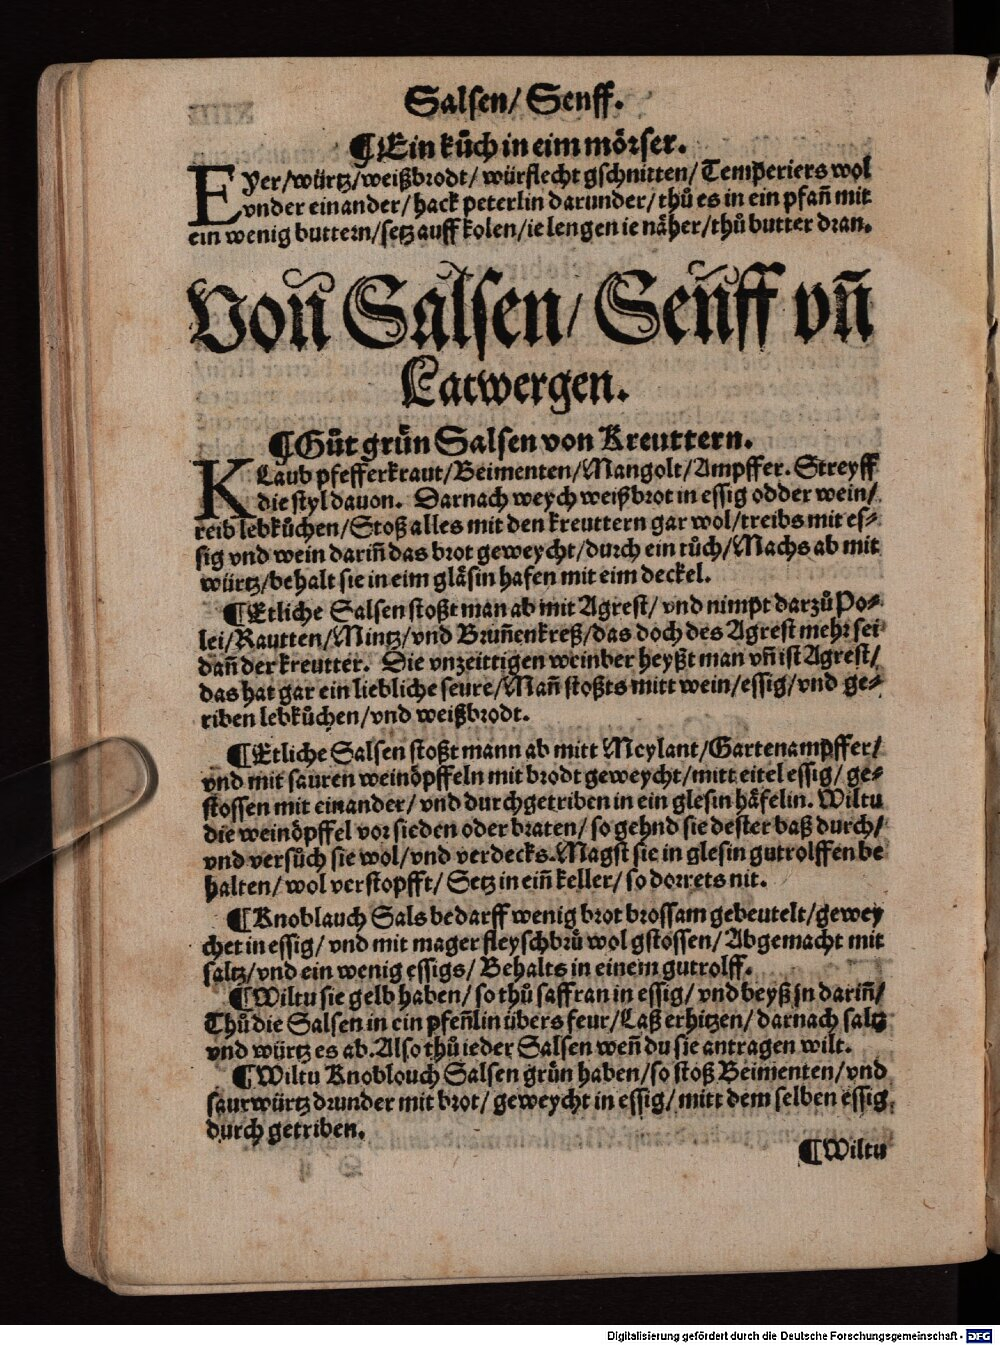 Salsen/ Senff.
¶Ein kůch in eim mörser.
EYer/würtz/weißbrodt/ würflecht gschnitten/ Temperiers wol
vnder einander/ hack peterlin darunder/ thů es in ein pfañ mit
ein wenig buttern/setz auff kolen/ie lengen ie näher/thů butter dran.
Von Salsen/ Senff vñ
Latwergen.
¶Gůt grün Salsen von Kreuttern.
KLaub pfefferkraut/Beimenten/Mangolt/Ampffer. Streyff
die styl dauon. Darnach weych weißbrot in essig odder wein/
reib lebkůchen/Stoß alles mit den kreuttern gar wol/treibs mit es-
sig vnd wein dariñ das brot geweycht/durch ein tůch/Machs ab mit
würtz/behalt sie in eim gläsin hafen mit eim deckel.
¶Etliche Salsen stoßt man ab mit Agrest/ vnd nimpt darzů Po-
lei/Rautten/Mintz/vnd Bruñenkreß/das doch des Agrest mehr sei
dañ der kreutter. Die vnzeittigen weinber heyßt man vñ ist Agrest/
das hat gar ein liebliche seure/Mañ stoßts mitt wein/essig/vnd ge-
riben lebkůchen/vnd weißbrodt.
¶Etliche Salsen stoßt mann ab mitt Meylant/Gartenampffer/
vnd mit sauren weinöpffeln mit brodt geweycht/mitt eitel essig/ ge-
stossen mit einander/ vnd durchgetriben in ein glesin häfelin. Wiltu
die weinöpffel vor sieden oder braten/ so gehnd sie dester baß durch/
vnd versůch sie wol/vnd verdecks. Magst sie in glesin gutrolffen be
halten/ wol verstopfft/ Setz in eiñ keller/ so dorrets nit.
¶Knoblauch Sals bedarff wenig brot brossam gebeutelt/gewey
chet in essig/ vnd mit mager fleyschbrů wol gstossen/ Abgemacht mit
saltz/vnd ein wenig essigs/ Behalts in einem gutrolff.
¶Wiltu sie gelb haben/ so thů saffran in essig/ vnd beyß jn dariñ/
Thů die Salsen in ein pfeñlin übers feur/Laß erhitzen/ darnach saltz
vnd würtz es ab. Also thů ieder Salsen weñ du sie antragen wilt.
¶Wiltu Knoblouch Salsen grün haben/so stoß Beimenten/vnd
saurwürtz drunder mit brot/ geweycht in essig/ mitt dem selben essig
durch getriben.
¶Wiltu
Digitalisierung gefördert durch die Deutsche Forschungsgemeinschaft - DFG